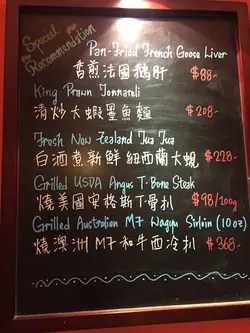 Special
Recommendation
Pan-Fried French Goose Liver
香煎法國鵝肝 $88-
King Prawn Tonnarelli
清炒大蝦墨魚麵 $208-
Fresh New Zealand Tua Tua
白酒煮新鮮紐西蘭大蜆 $228-
Grilled USDA Angus T-Bone Steak
燒美國安格斯T骨扒 $98/100g
Grilled Australian M7 Wagyu Sirloin (10oz)
燒澳洲M7和牛西冷扒 $368-